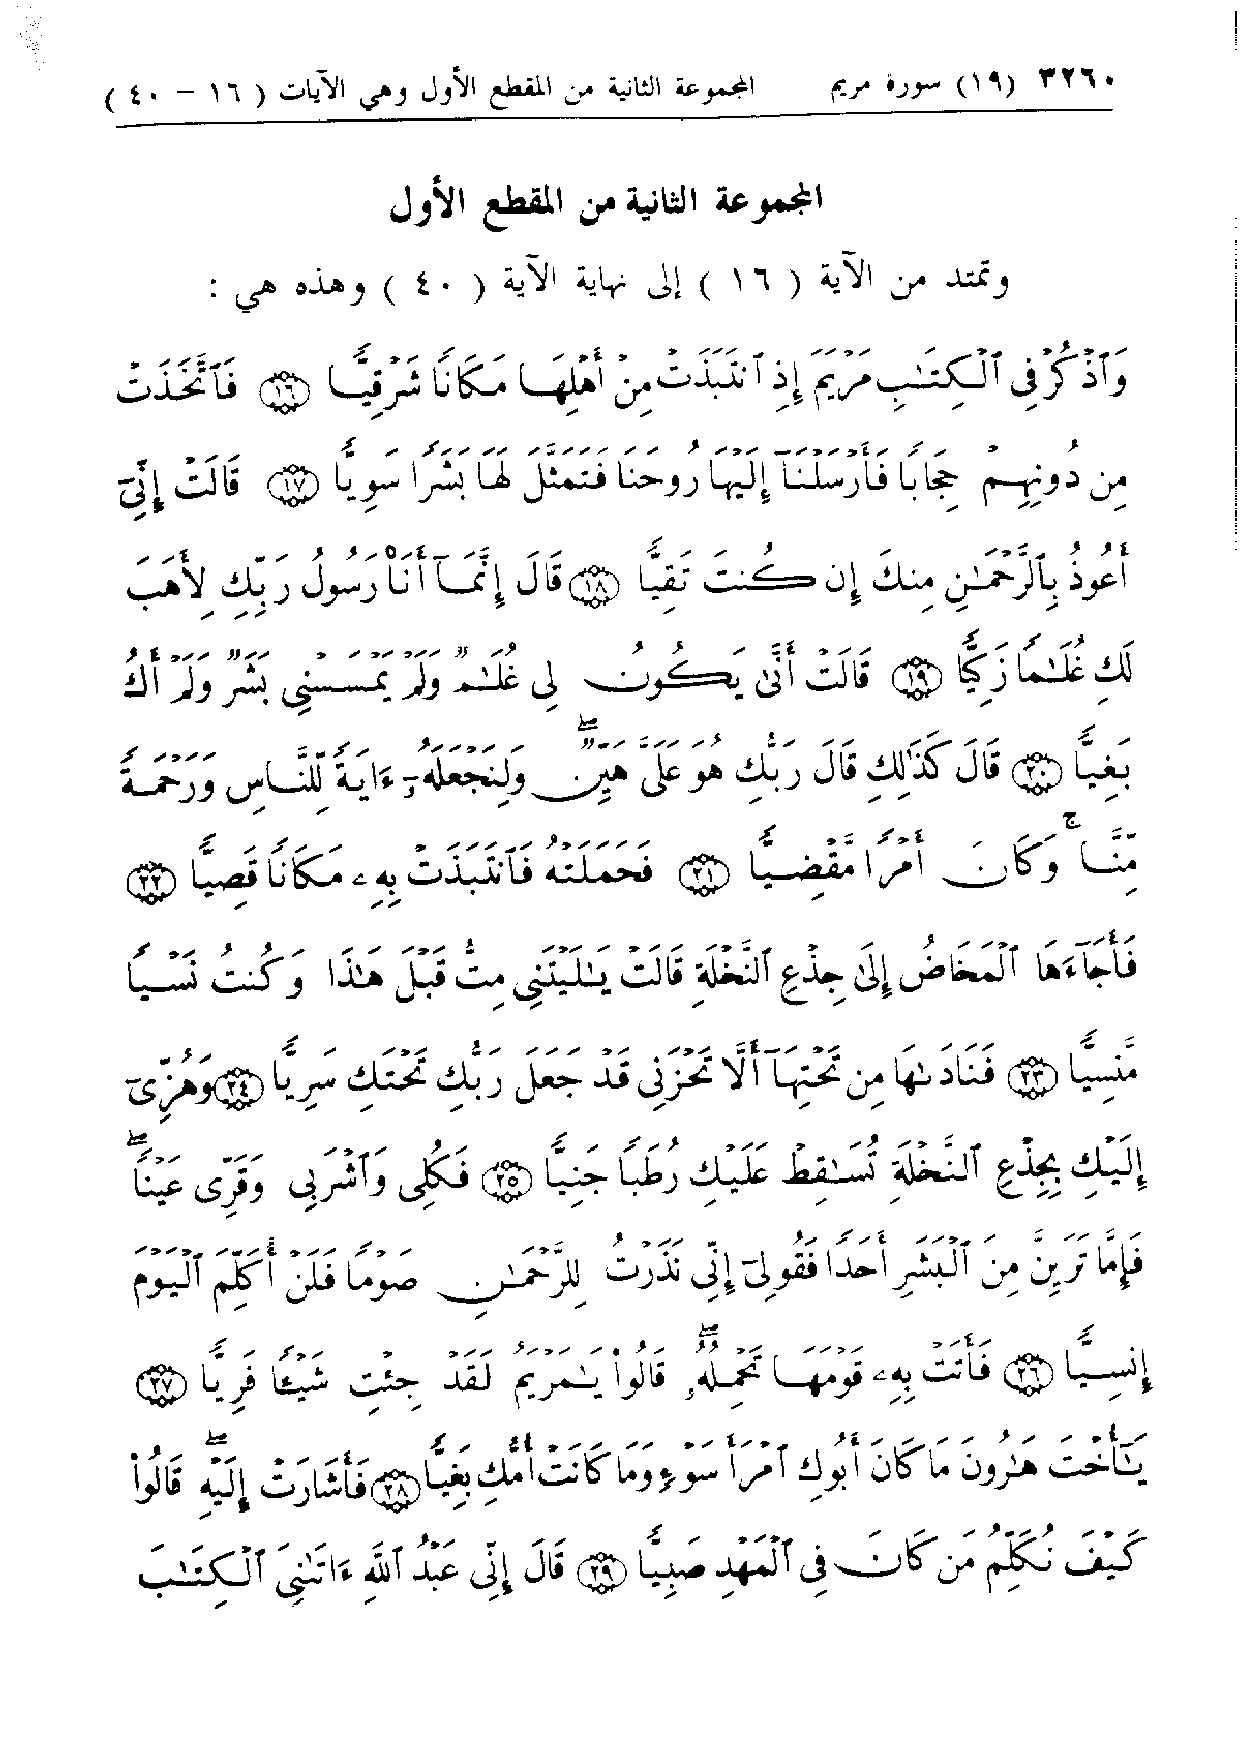 ٣٢٦٠ (١٩) سورة مريم المجموعة الثانية من المقطع الأول وهي الآيات ( ١٦ - ٤٠ )
المجموعة الثانية من المقطع الأول
وتمتد من الآية ( ١٦ ) إلى نهاية الآية ( ٤٠ ) وهذه هي :
وَٱذْكُرْ فِى ٱلْكِتَـٰبِ مَرْيَمَ إِذِ ٱنتَبَذَتْ مِنْ أَهْلِهَا مَكَانًا شَرْقِيًّا ﴿١٦﴾ فَٱتَّخَذَتْ
مِن دُونِهِمْ حِجَابًا فَأَرْسَلْنَآ إِلَيْهَا رُوحَنَا فَتَمَثَّلَ لَهَا بَشَرًا سَوِيًّا ﴿١٧﴾ قَالَتْ إِنِّىٓ
أَعُوذُ بِٱلرَّحْمَـٰنِ مِنكَ إِن كُنتَ تَقِيًّا ﴿١٨﴾ قَالَ إِنَّمَآ أَنَا۠ رَسُولُ رَبِّكِ لِأَهَبَ
لَكِ غُلَـٰمًا زَكِيًّا ﴿١٩﴾ قَالَتْ أَنَّىٰ يَكُونُ لِى غُلَـٰمٌ وَلَمْ يَمْسَسْنِى بَشَرٌ وَلَمْ أَكُ
بَغِيًّا ﴿٢٠﴾ قَالَ كَذَٰلِكِ قَالَ رَبُّكِ هُوَ عَلَىَّ هَيِّنٌ ۖ وَلِنَجْعَلَهُۥٓ ءَايَةً لِّلنَّاسِ وَرَحْمَةً
مِّنَّا ۚ وَكَانَ أَمْرًا مَّقْضِيًّا ﴿٢١﴾ فَحَمَلَتْهُ فَٱنتَبَذَتْ بِهِۦ مَكَانًا قَصِيًّا ﴿٢٢﴾
فَأَجَآءَهَا ٱلْمَخَاضُ إِلَىٰ جِذْعِ ٱلنَّخْلَةِ قَالَتْ يَـٰلَيْتَنِى مِتُّ قَبْلَ هَـٰذَا وَكُنتُ نَسْيًا
مَّنسِيًّا ﴿٢٣﴾ فَنَادَىٰهَا مِن تَحْتِهَآ أَلَّا تَحْزَنِى قَدْ جَعَلَ رَبُّكِ تَحْتَكِ سَرِيًّا ﴿٢٤﴾ وَهُزِّىٓ
إِلَيْكِ بِجِذْعِ ٱلنَّخْلَةِ تُسَـٰقِطْ عَلَيْكِ رُطَبًا جَنِيًّا ﴿٢٥﴾ فَكُلِى وَٱشْرَبِى وَقَرِّى عَيْنًا ۖ
فَإِمَّا تَرَيِنَّ مِنَ ٱلْبَشَرِ أَحَدًا فَقُولِىٓ إِنِّى نَذَرْتُ لِلرَّحْمَـٰنِ صَوْمًا فَلَنْ أُكَلِّمَ ٱلْيَوْمَ
إِنسِيًّا ﴿٢٦﴾ فَأَتَتْ بِهِۦ قَوْمَهَا تَحْمِلُهُۥ ۖ قَالُوا۟ يَـٰمَرْيَمُ لَقَدْ جِئْتِ شَيْـًٔا فَرِيًّا ﴿٢٧﴾
يَـٰٓأُخْتَ هَـٰرُونَ مَا كَانَ أَبُوكِ ٱمْرَأَ سَوْءٍ وَمَا كَانَتْ أُمُّكِ بَغِيًّا ﴿٢٨﴾ فَأَشَارَتْ إِلَيْهِ ۖ قَالُوا۟
كَيْفَ نُكَلِّمُ مَن كَانَ فِى ٱلْمَهْدِ صَبِيًّا ﴿٢٩﴾ قَالَ إِنِّى عَبْدُ ٱللَّهِ ءَاتَىٰنِىَ ٱلْكِتَـٰبَ